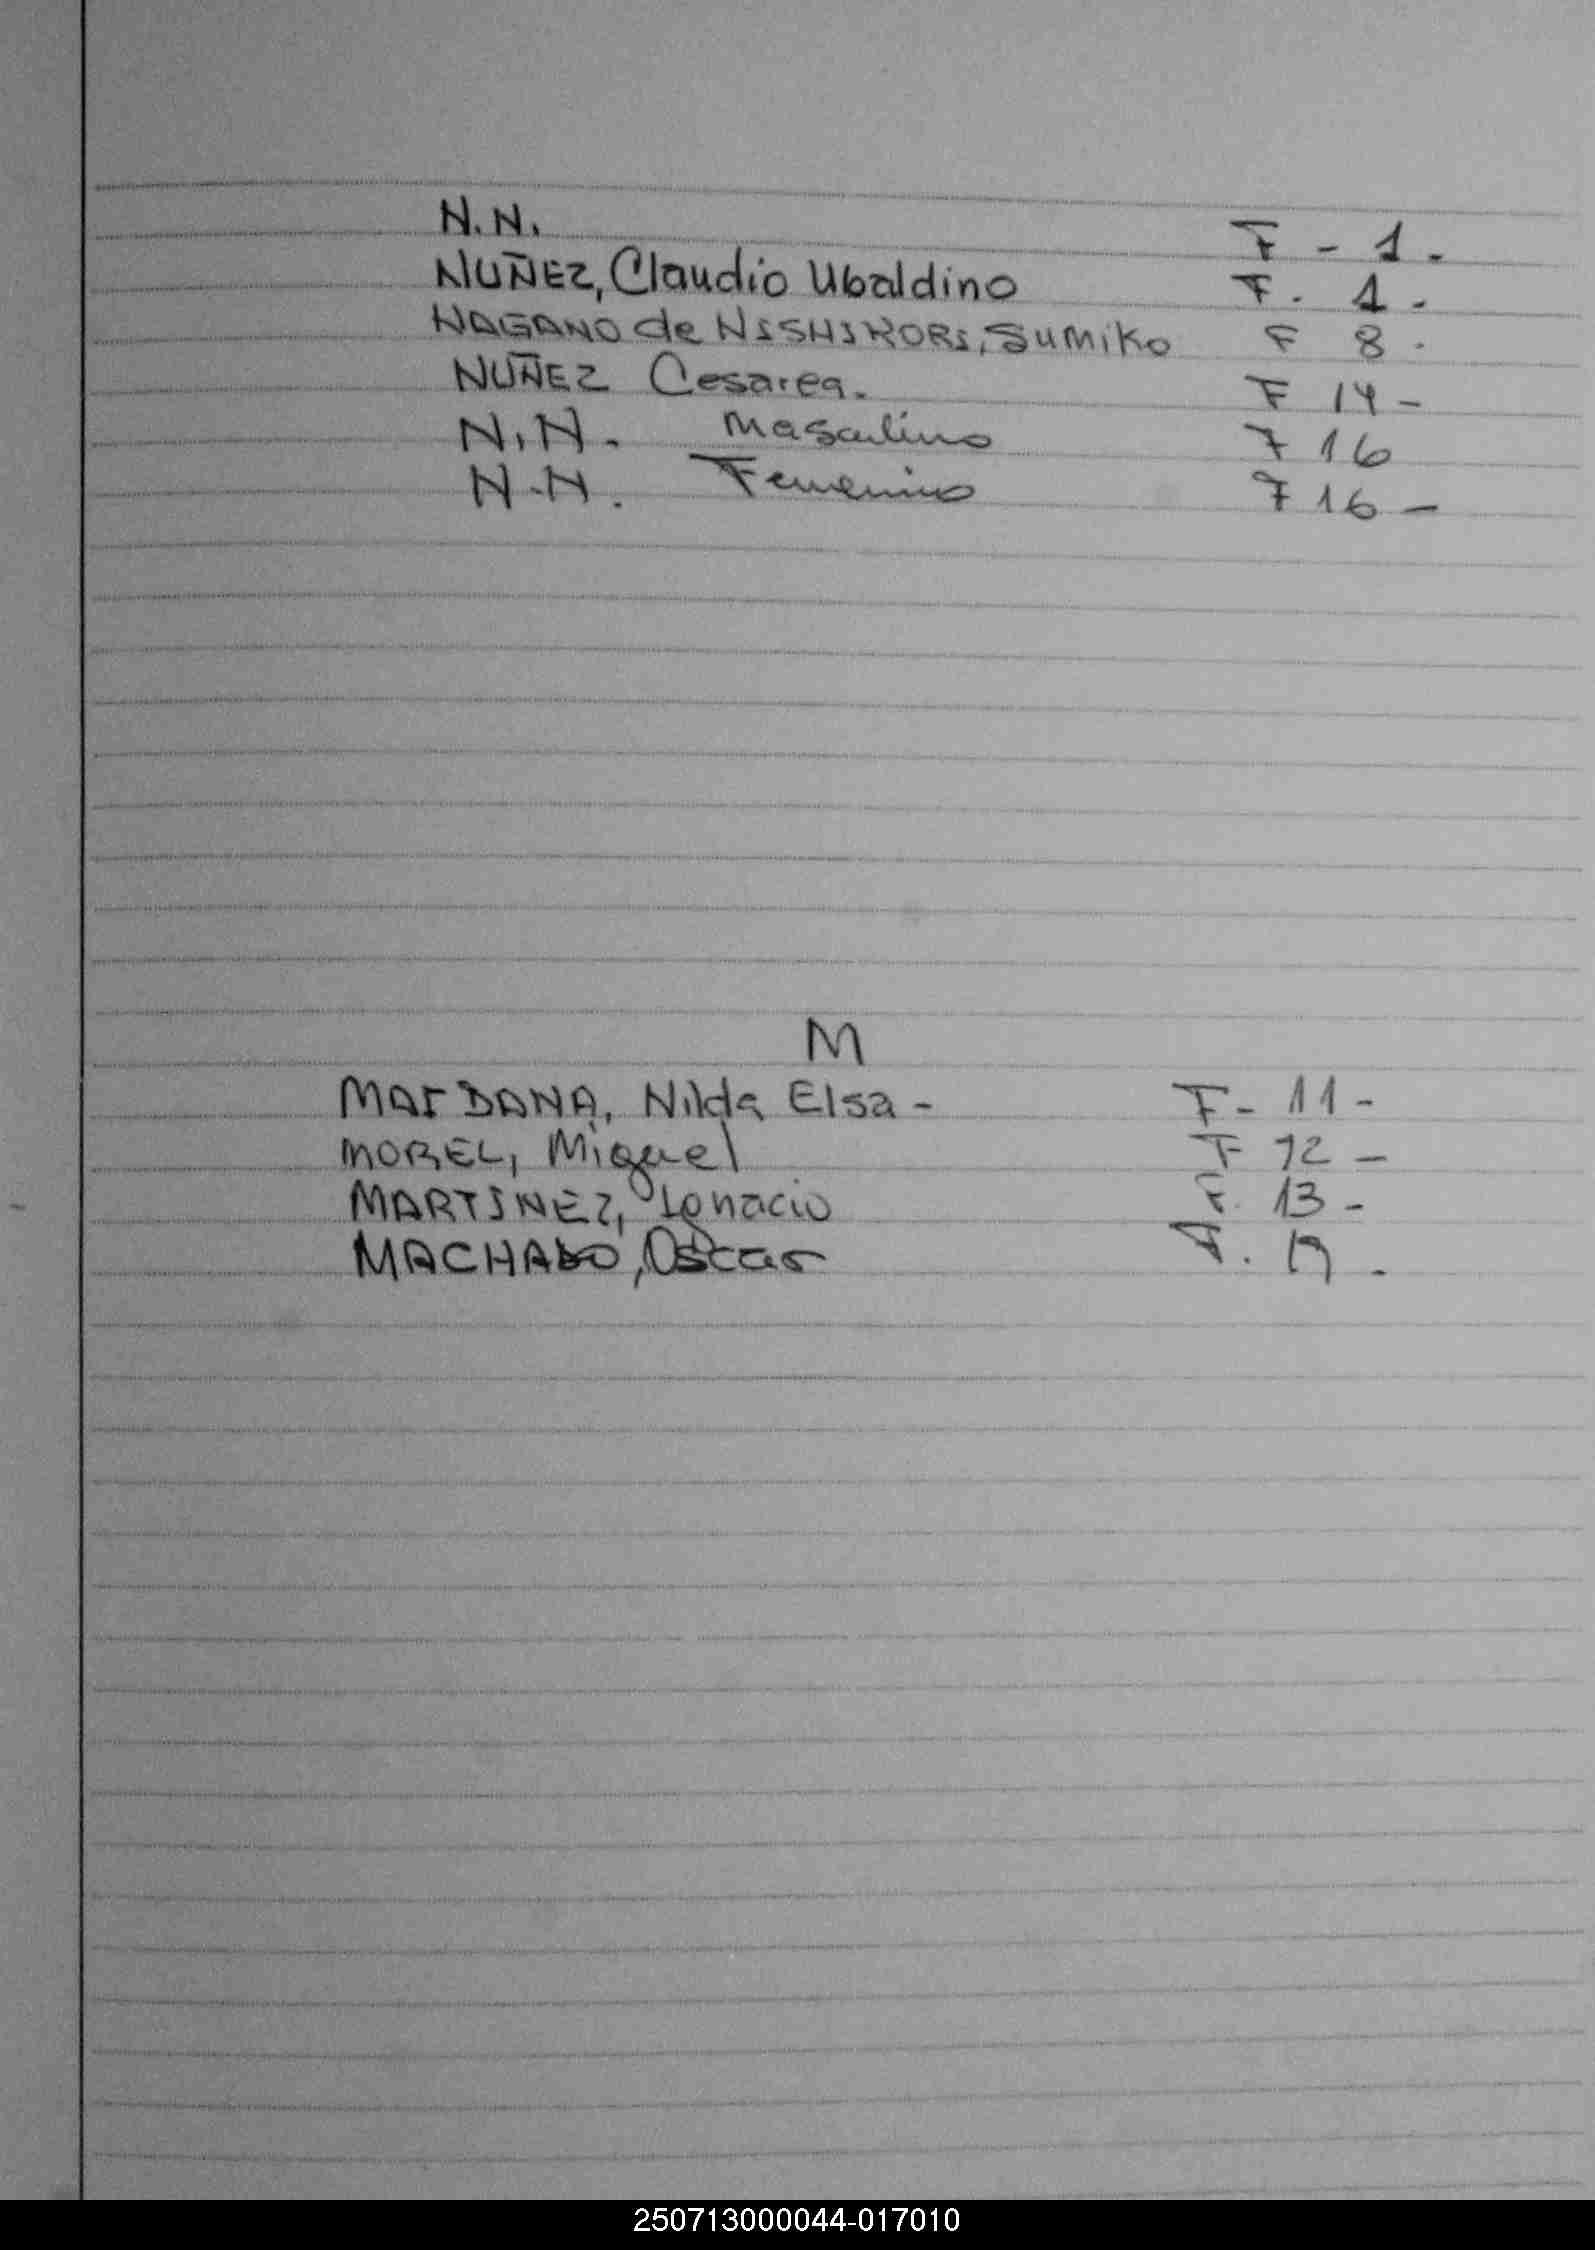 N.N. F - 1.
NUÑEZ, Claudio Ubaldino F. 1.
NAGANO de NISHIKORI, Sumiko F 8.
NUÑEZ Cesarea. F 14-
N.N. Masculino F 16
N.N. Femenino F 16-
M
MAIDANA, Nilda Elsa - F- 11-
MOREL, Miguel F 12-
MARTINEZ, Ignacio F. 13-
MACHADO, Oscar F.
250713000044-017010